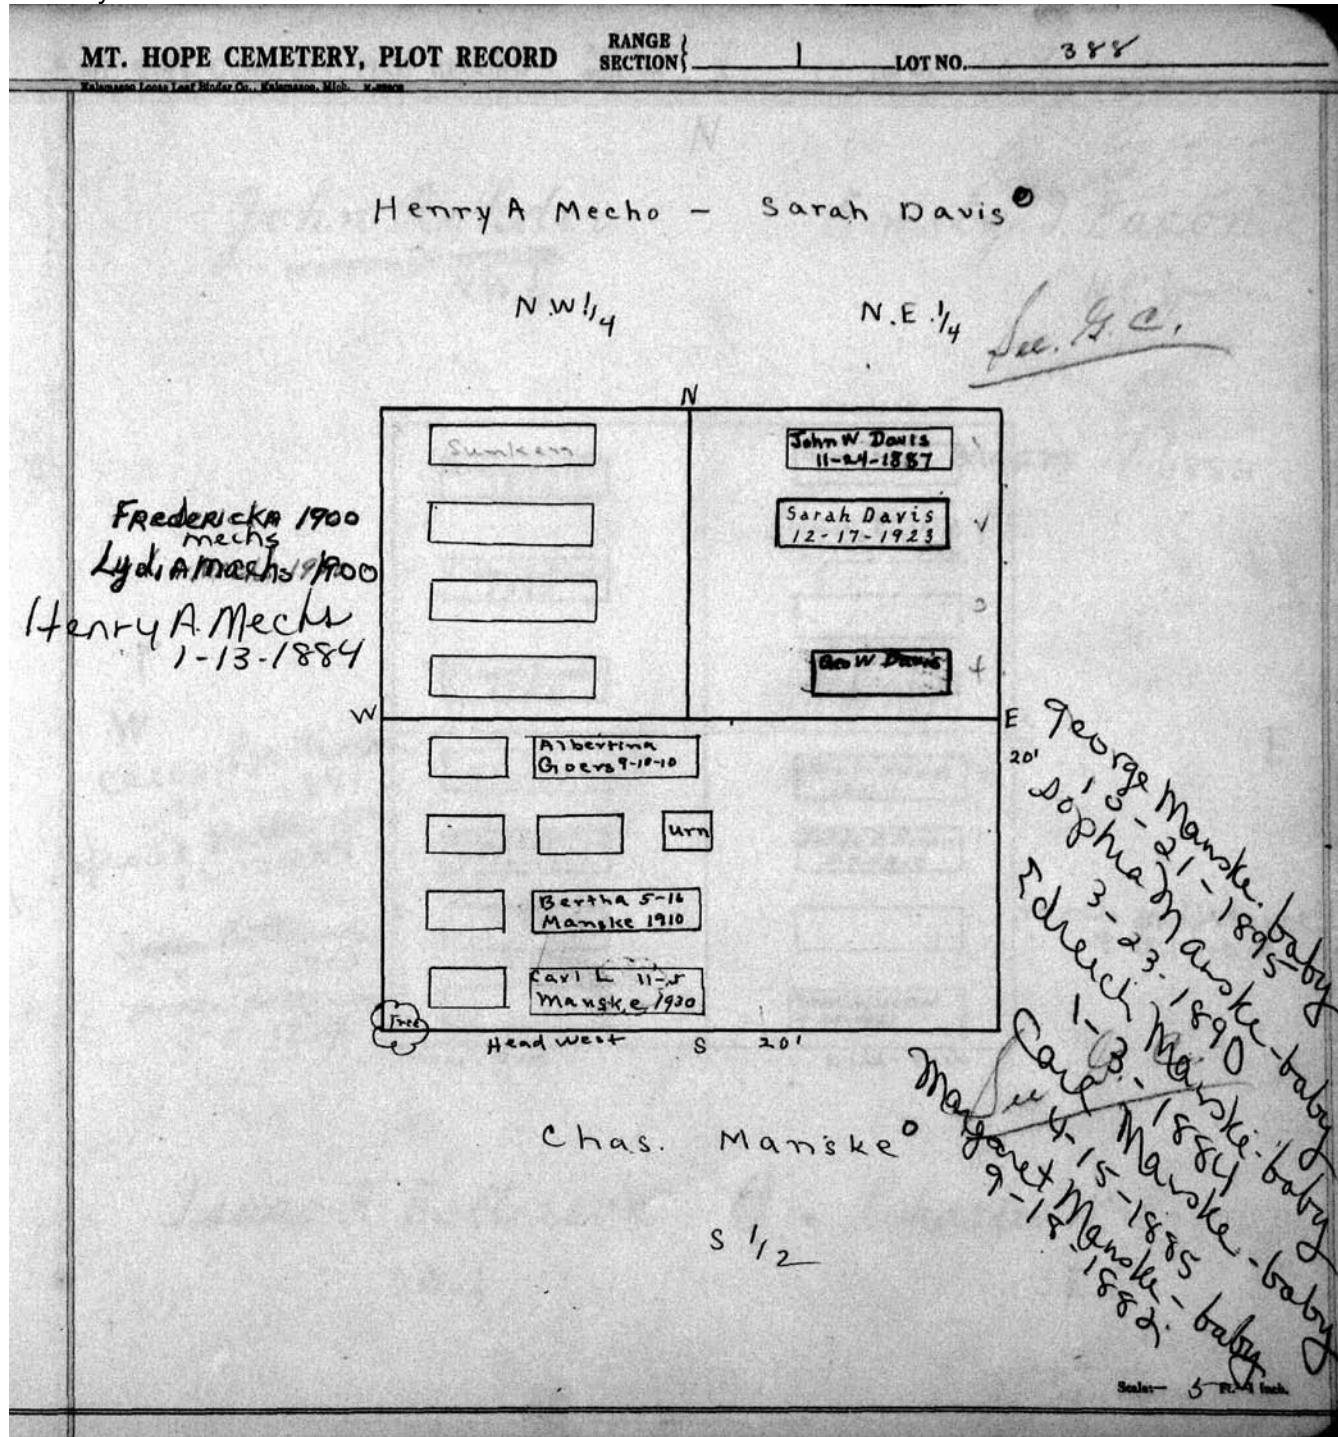 MT. HOPE CEMETERY, PLOT RECORD
RANGE
SECTION
1
LOT NO. 388
Kalamazoo Loose Leaf Binder Co., Kalamazoo, Mich.
Henry A Mecho - Sarah Davis
N.W 1/4
N.E. 1/4
See. G. C.
N
Sunken
John W. Davis
11-24-1887
Fredericka 1900
mechs
Sarah Davis
12-17-1923
Lydia Mechs 1900
Henry A. Mechs
1-13-1884
Geo W Davis
W
E
Albertina
Goers 9-10-10
20'
urn
Bertha 5-16
Manske 1910
Carl L 11-5
Manske 1930
Tree
Head West
S 20'
George Manske. baby
10-21-1895
Sophia Manske - baby
3-23-1890
Manske. baby
1-3-1884
Carl Manske - baby
4-15-1885
Margaret Manske - baby
9-18-1882
See
Chas. Manske
S 1/2
Scale— 5 Ft.-1 Inch.